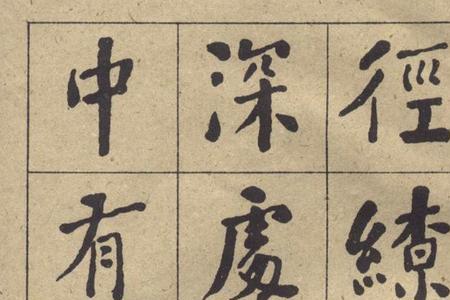 徑繚
深處
中有